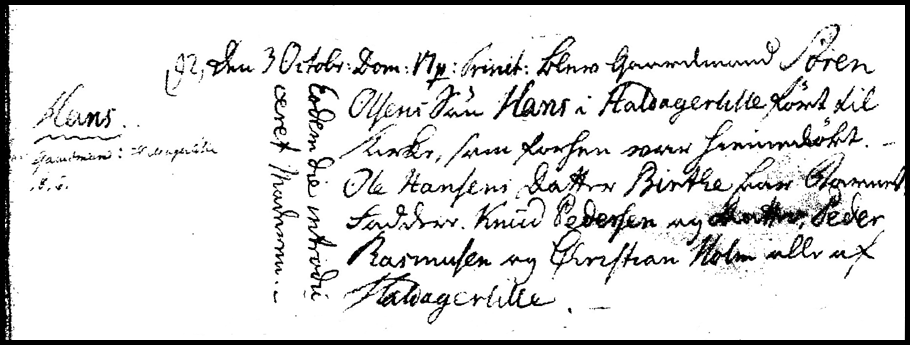 Hans.
Gaardmand: Haldagerlille
92, Den 3 Octobr: Dom: 17 p: Trinit: blev Gaardmand Sören
Olsens Sön Hans i Haldagerlille fört til
Kirke, som forhen war hiemmedöbt. -
Ole Hansens Datter Birthe bar Barnet
Faddere. Knud Pedersen og Peder
Rasmusen og Christian Holm alle af
Haldagerlille. -
Eodem die introdu
ceret Moderen. -